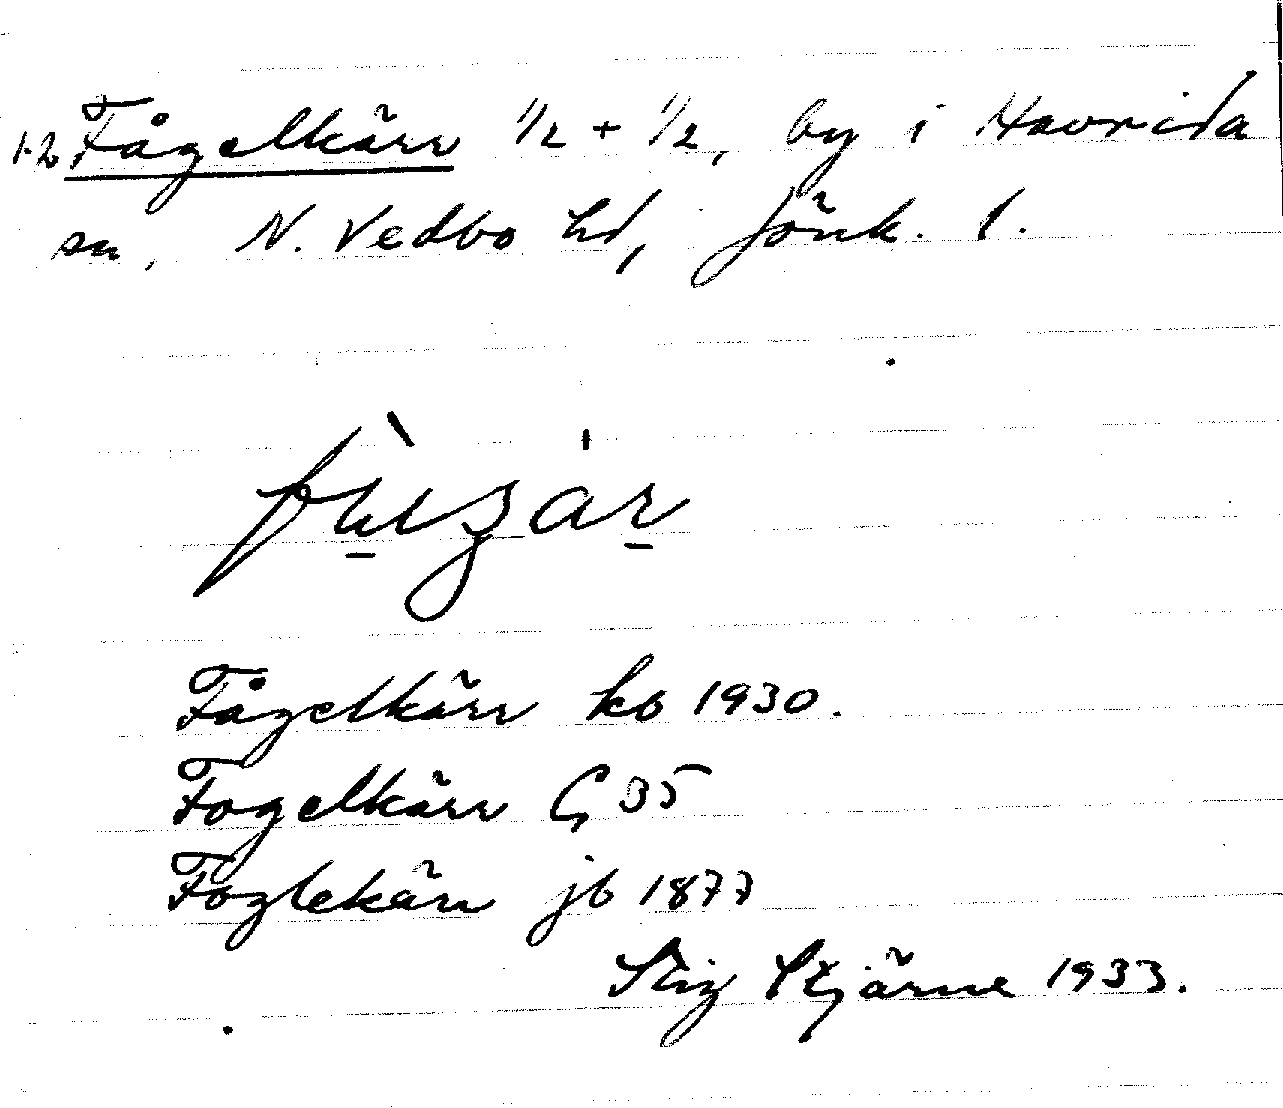 1-2 Fågelkärr 1/2 + 1/2, by i Haurida
sn, N. Vedbo hd, Jönk. l.
Fågelkärr kb 1930.
Fogelkärr G 35
Foglekärr jb 1877
Stig Stjärne 1933.